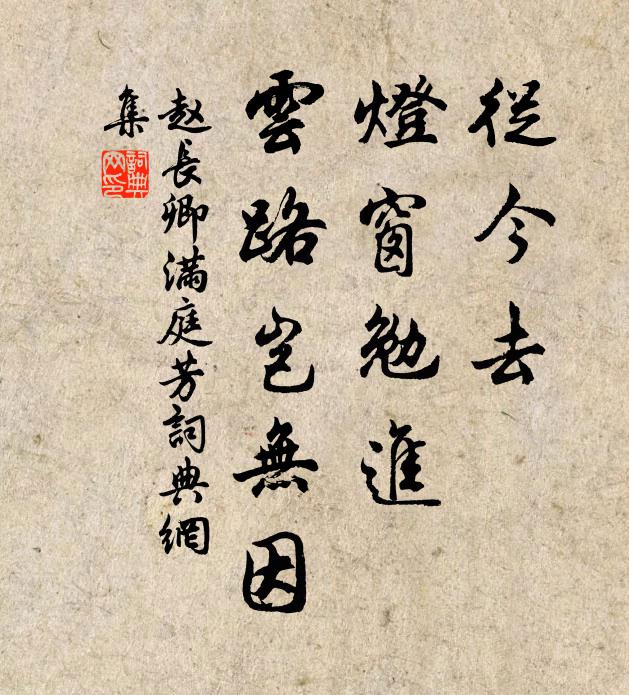 從今去
燈窗勉進
雲路岂無因
赵長卿滿庭芳詞典網
集
詞典
网印